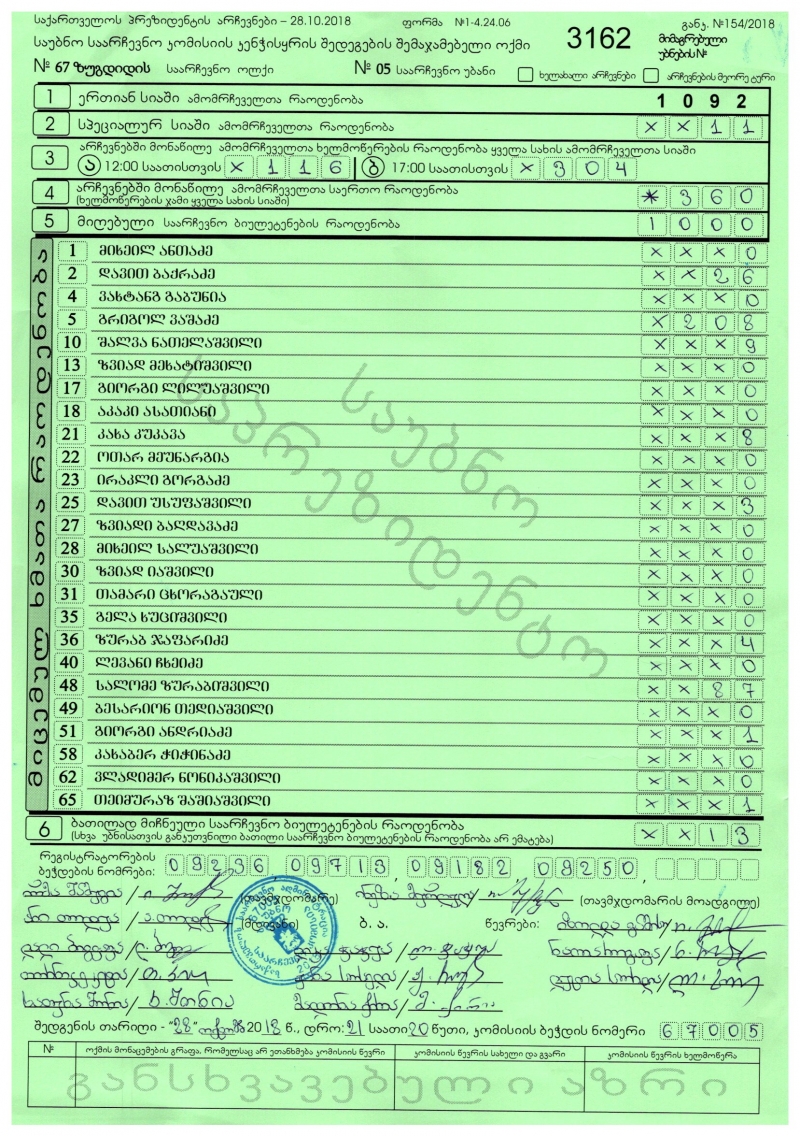 საქართველოს პრეზიდენტის არჩევნები – 28.10.2018 ფორმა №1-4.24.06 განკ. №154/2018
საუბნო საარჩევნო კომისიის კენჭისყრის შედეგების შემაჯამებელი ოქმი 3162 მიმაგრებული უბნების №
№ 67 ზუგდიდის საარჩევნო ოლქი № 05 საარჩევნო უბანი ხელახალი არჩევნები არჩევნების მეორე ტური
1 ერთიან სიაში ამომრჩეველთა რაოდენობა 1 0 9 2
2 სპეციალურ სიაში ამომრჩეველთა რაოდენობა x x 1 1
3 არჩევნებში მონაწილე ამომრჩეველთა ხელმოწერების რაოდენობა ყველა სახის ამომრჩეველთა სიაში
ა 12:00 საათისთვის x 1 1 6 ბ 17:00 საათისთვის x 3 0 4
4 არჩევნებში მონაწილე ამომრჩეველთა საერთო რაოდენობა x 3 6 0
(ხელმოწერების ჯამი ყველა სახის სიაში)
5 მიღებული საარჩევნო ბიულეტენების რაოდენობა 1 0 0 0
მიცემულ ხმათა რაოდენობა
1 მიხეილ ანთაძე x x x 0
2 დავით ბაქრაძე x x 2 6
4 ვახტანგ გაბუნია x x x 0
5 გრიგოლ ვაშაძე x 2 0 8
10 შალვა ნათელაშვილი x x x 9
13 ზვიად მეხატიშვილი x x x 0
17 გიორგი ლილუაშვილი x x x 0
18 აკაკი ასათიანი x x x 0
21 კახა კუკავა x x x 8
22 ოთარ მეუნარგია x x x 0
23 ირაკლი გორგაძე x x x 0
25 დავით უსუფაშვილი x x x 3
27 ზვიადი ბაღდავაძე x x x 0
28 მიხეილ სალუაშვილი x x x 0
30 ზვიად იაშვილი x x x 0
31 თამარი ცხორაგაული x x x 0
35 გელა ხუციშვილი x x x 0
36 ზურაბ ჯაფარიძე x x x 4
40 ლევანი ჩხეიძე x x x 0
48 სალომე ზურაბიშვილი x x 8 7
49 ბესარიონ თედიაშვილი x x x 0
51 გიორგი ანდრიაძე x x x 1
58 კახაბერ ჭიჭინაძე x x x 0
62 ვლადიმერ ნონიკაშვილი x x x 0
65 თეიმურაზ შაშიაშვილი x x x 1
საუბნო
საპრეზიდენტო
6 ბათილად მიჩნეული საარჩევნო ბიულეტენების რაოდენობა x x 1 3
(სხვა უბნისათვის განკუთვნილი ბათილი საარჩევნო ბიულეტენების რაოდენობა არ ემატება)
რეგისტრატორების ბეჭდის ნომრები: 09236 09713 09182 09250
(თავმჯდომარე) (თავმჯდომარის მოადგილე)
(მდივანი) ბ. ა. წევრები:
შედგენის თარიღი - "28" 2018 წ., დრო: 21 საათი 20 წუთი, კომისიის ბეჭდის ნომერი 6 7 0 0 5
№ ოქმის მონაცემების გრაფა, რომელსაც არ ეთანხმება კომისიის წევრი კომისიის წევრის სახელი და გვარი კომისიის წევრის ხელმოწერა
განსხვავებული აზრი